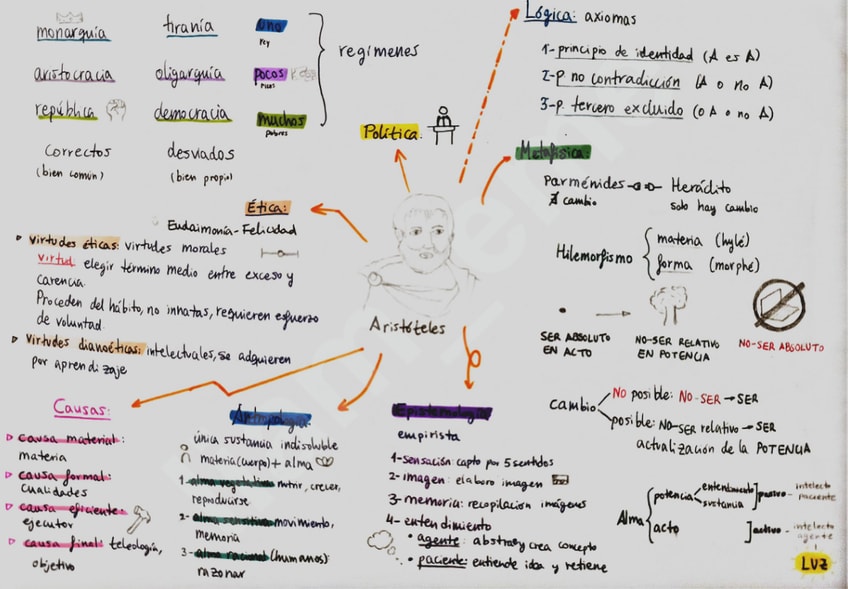 monarquía tiranía uno
rey
aristocracia oligarquía pocos
ricos
república democracia muchos
pobres
regímenes
Correctos desviados
(bien común) (bien propio)
Política:
Lógica: axiomas
1- principio de identidad (A es A)
2- p no contradicción (A o no A)
3- p. tercero excluido (o A o no A)
Metafísica:
Parménides Heráclito
cambio solo hay cambio
Hilemorfismo
materia (hylé)
forma (morphé)
SER ABSOLUTO
EN ACTO
NO-SER RELATIVO
EN POTENCIA
NO-SER ABSOLUTO
cambio
NO posible: NO-SER → SER
posible: NO-SER relativo → SER
actualización de la POTENCIA
Alma
potencia
entendimiento
sustancia
pasivo - intelecto
paciente
acto
activo - intelecto
agente
LUZ
Ética:
Eudaimonía - Felicidad
virtudes éticas: virtudes morales
virtud elegir término medio entre exceso y
carencia.
Proceden del hábito, no innatas, requieren esfuerzo
de voluntad.
virtudes dianoéticas: intelectuales, se adquieren
por aprendizaje
Aristóteles
Causas:
causa material:
materia
causa formal:
cualidades
causa eficiente:
ejecutor
causa final: teleología,
objetivo
Antropología
única sustancia indisoluble
materia (cuerpo) + alma
1- alma vegetativa nutrir, crecer,
reproducirse
2- alma sensitiva movimiento,
memoria
3- alma racional (humanos):
razonar
Epistemología
empirista
1- sensación: capto por 5 sentidos
2- imagen: elaboro imagen
3- memoria: recopilación imágenes
4- entendimiento
• agente: abstrae y crea concepto
• paciente: entiende idea y retiene